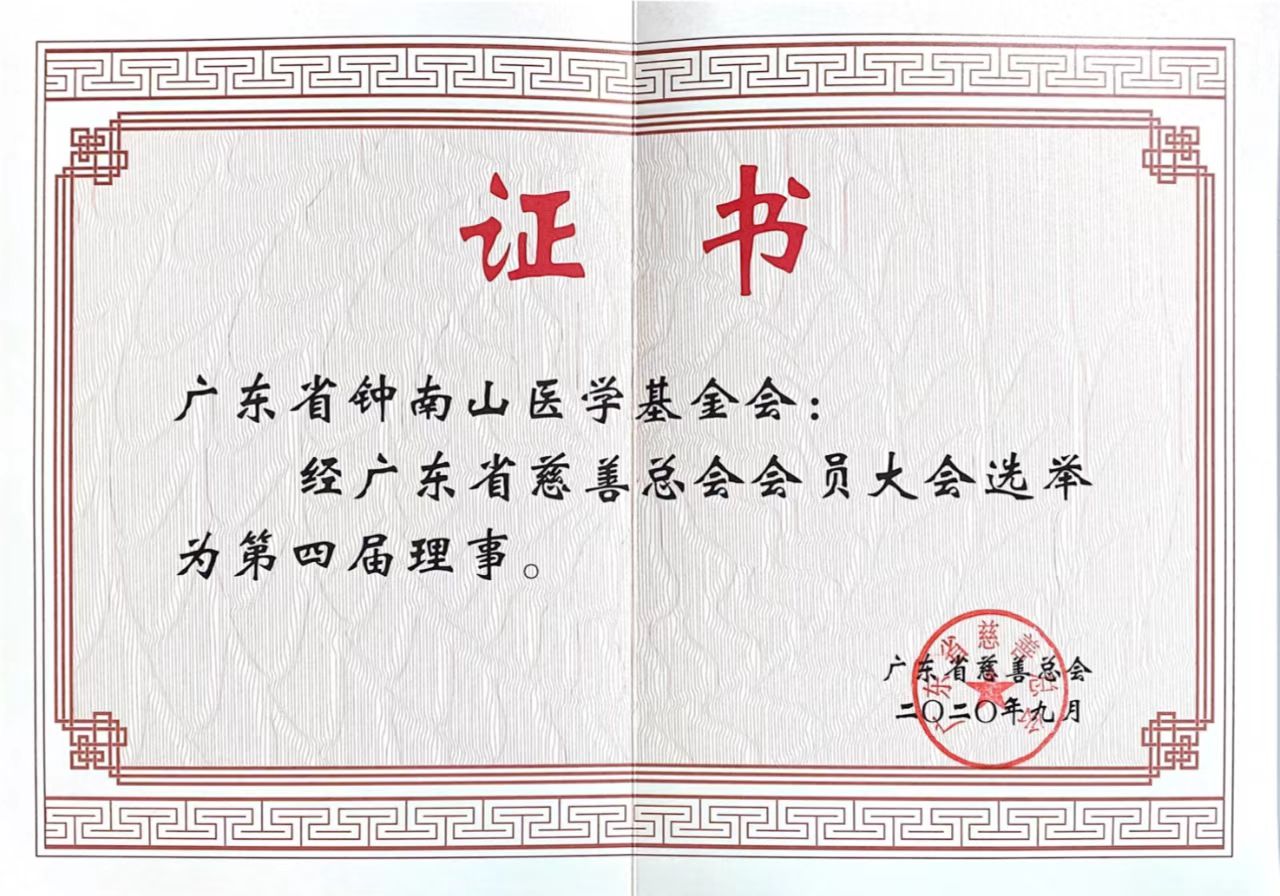 证书
广东省钟南山医学基金会：
经广东省慈善总会会员大会选举
为第四届理事。
广东省慈善总会
二〇二〇年九月
广东省慈善总会